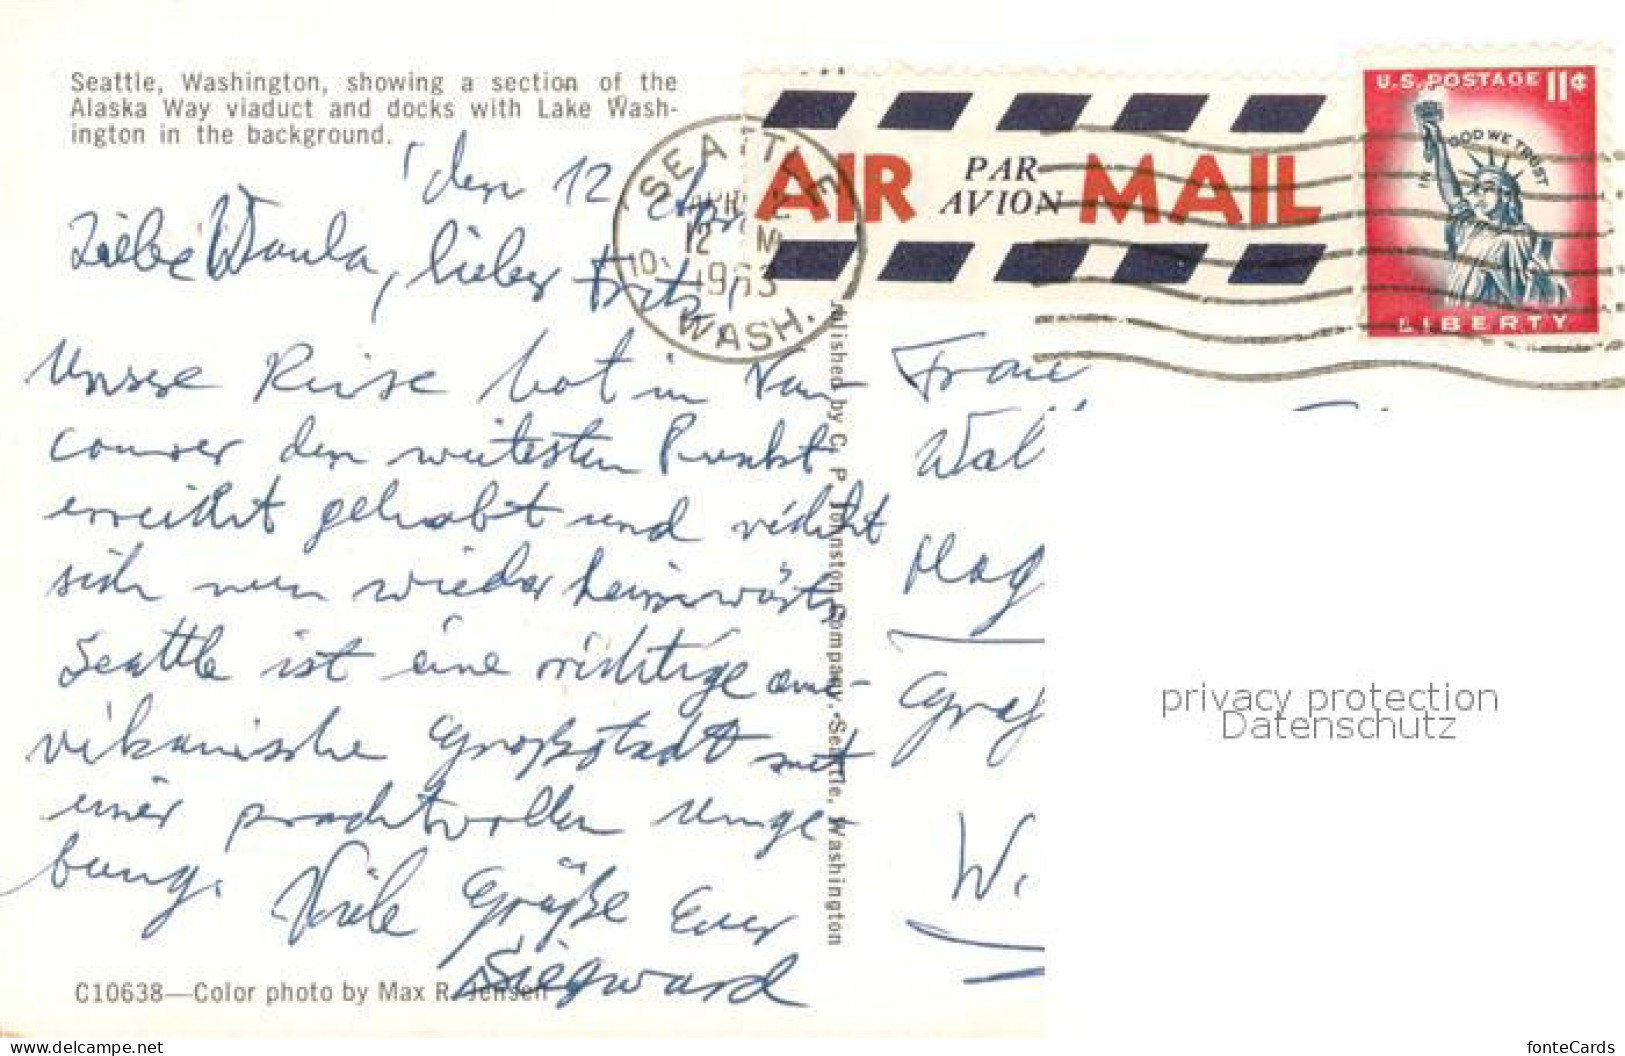 Seattle, Washington, showing a section of the
Alaska Way viaduct and docks with Lake Wash-
ington in the background.
den 12 Apr
Liebe Waula, lieber Fritz,
Unsere Reise hat in Van-
couver den weitesten Punkt
erreicht gehabt und richtet
sich nun wieder heimwärts
Seattle ist eine richtige ame-
rikanische Großstadt mit
einer prachtvollen Umge-
bung. Viele Grüße Euer
Siegward
C10638—Color photo by Max R. Jensen
SEATTLE
WASH.
12 M
1963
AIR PAR AVION MAIL
U.S. POSTAGE 11¢
IN GOD WE TRUST
LIBERTY
Published by C. P. Johnston Company, Seattle, Washington
Frau
Wal
Hag
Graf
W.
privacy protection
Datenschutz
www.delcampe.net
fonteCards